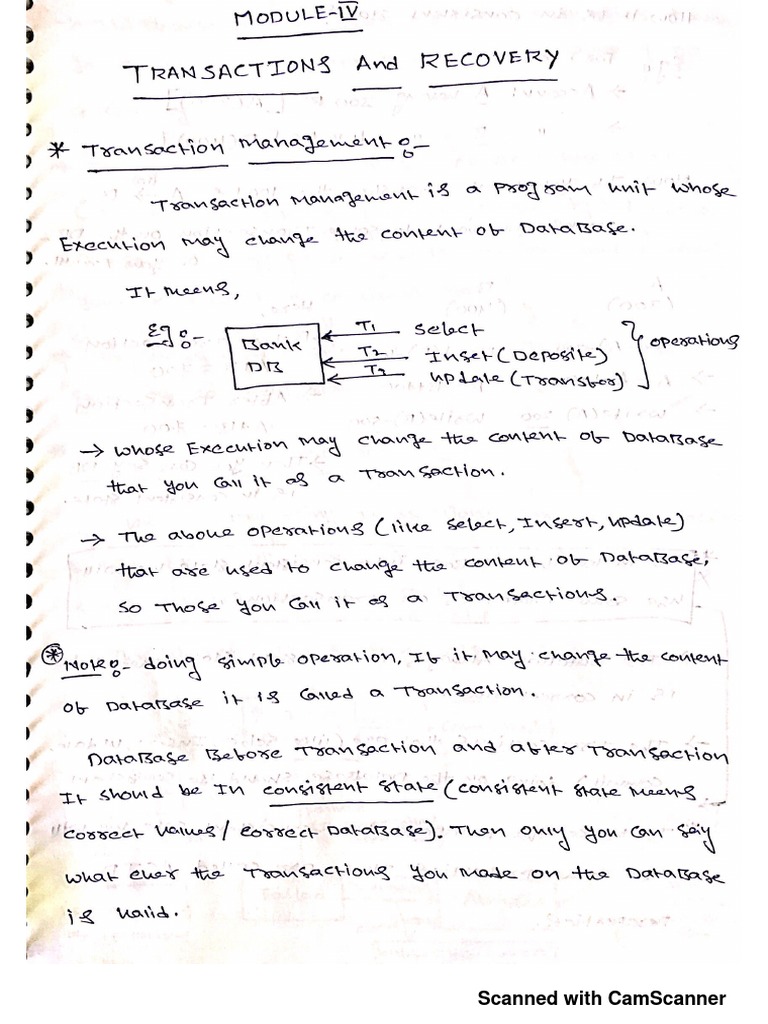 MODULE-IV
TRANSACTIONS And RECOVERY
* Transaction Management :-
Transaction Management is a program unit whose
Execution may change the content of DataBase.
It means,
Eg :- Bank DB
T1 Select
T2 Inset (Deposite)
T3 update (Transfor)
operations
→ whose Execution may change the content of DataBase
that you call it as a Transaction.
→ The above operations (like select, Insert, update)
that are used to change the content of DataBase,
so Those you call it as a Transactions.
* Note :- doing simple operation, If it may change the content
of DataBase it is called a Transaction.
DataBase Before Transaction and after Transaction
It should be In consistent state (consistent state means
correct values / correct DataBase). Then only you can say
what ever the Transactions you made on the DataBase
is valid.
Scanned with CamScanner